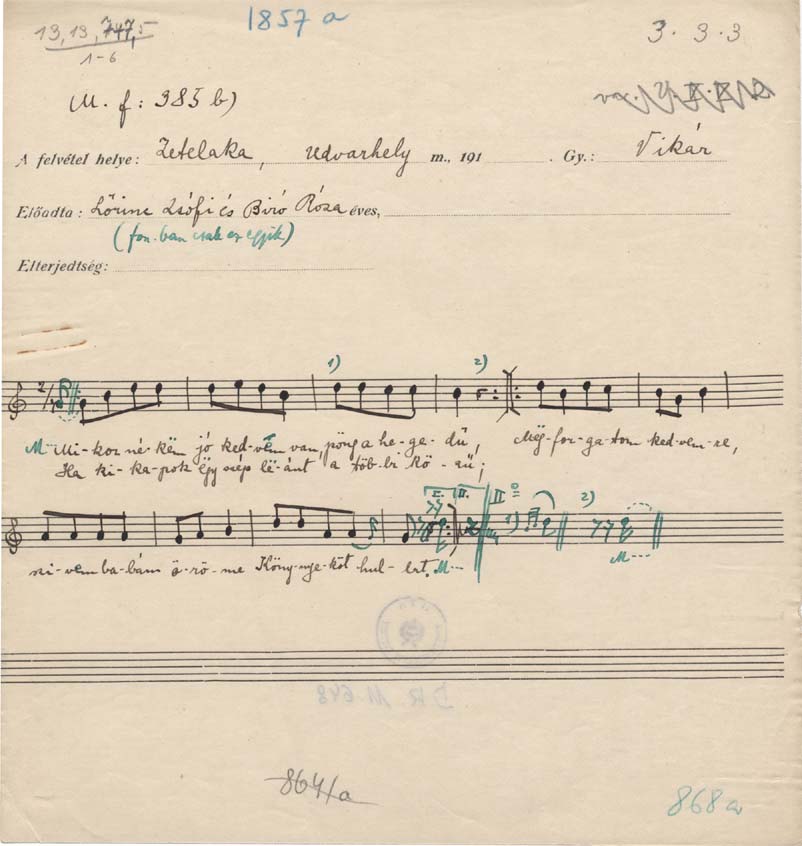 13, 13, 747, 5
1-6
1857 a
3. 3. 3
M. f: 385 b)
A felvétel helye: Zetelaka, Udvarhely m., 191 . Gy.: Vikár
Előadta: Lőrinc Zsófi és Biró Róza éves,
(fon.ban csak az egyik)
Elterjedtség:
1) 2)
M Mi-kor né-këm jó ked-vem van, pöng a he-ge-dű, Mëg-for-ga-tom ked-vem-re,
Ha ki-ka-pok ëgy szép lë-ánt a töb-bi kö-zű;
I. II. III 1) 2)
szi-vem ba-bám ö-rö-me Köny-nye-ket hul-lert. M--- M---
DR. M 648
864/a
868 a